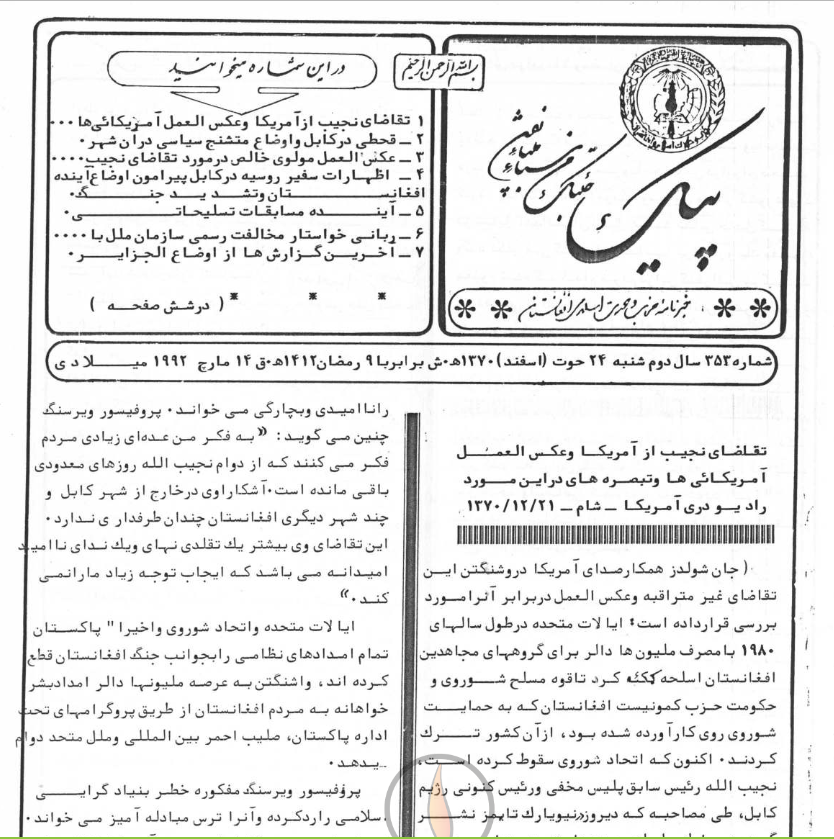 بسم الله الرحمن الرحیم
پیام
خبرنامهٔ حزب وحدت اسلامی افغانستان
در این شماره میخوانید
۱ تقاضای نجیب از آمریکا وعکس العمل آمریکائی‌ها ۰۰۰
۲ ــ قحطی درکابل واوضاع متشنج سیاسی درآن شهر۰
۳ ــ عکس العمل مولوی خالص درمورد تقاضای نجیب۰۰۰۰
۴ ــ اظهارات سفیر روسیه درکابل پیرامون اوضاع آینده
افغانستان وتشدید جنگ۰
۵ ــ آینده مسابقات تسلیحاتی۰
۶ ــ ربانی خواستار مخالفت رسمی سازمان ملل با ۰۰۰۰
۷ ــ آخرین گزارش ها از اوضاع الجزایر۰
( درشش صفحه )
شماره ۳۵۳ سال دوم شنبه ۲۴ حوت (اسفند) ۱۳۷۰ه‍۰ش برابربا ۹ رمضان ۱۴۱۲ه‍۰ق ۱۴ مارچ ۱۹۹۲ میلادی
تقاضای نجیب از آمریکا وعکس العمل
آمریکائی ها وتبصره های دراین مورد
رادیو دری آمریکا ــ شام ــ ۱۳۷۰/۱۲/۲۱
( جان شولدز همکار صدای آمریکا در وشنگتن این
تقاضای غیر متراقبه وعکس العمل دربرابر آنرا مورد
بررسی قرارداده است: ایالات متحده درطول سالهای
۱۹۸۰ بامصرف ملیون‌ها دالر برای گروههای مجاهدین
افغانستان اسلحه کمک کرد تاقوه مسلح شوروی و
حکومت حزب کمونیست افغانستان که به حمایت
شوروی روی کارآورده شده بود، ازآن کشور ترک
کردند۰ اکنون که اتحاد شوروی سقوط کرده است،
نجیب الله رئیس سابق پلیس مخفی ورئیس کنونی رژیم
کابل، طی مصاحبه که دیروز درنیویارک تایمز نشر
را ناامیدی وبچارگی می خواند۰ پروفیسور ویرسنگ
چنین می گوید: «به فکر من عده‌ای زیادی مردم
فکر می کنند که از دوام نجیب الله روزهای معدودی
باقی مانده است۰آشکارا وی درخارج از شهر کابل و
چند شهر دیگری افغانستان چندان طرفداری ندارد۰
این تقاضای وی بیشتر یک تقلدی نهای ویک ندای ناامید
امیدانه می باشد که ایجاب توجه زیاد مارا نمی
کند۰»
ایالات متحده واتحاد شوروی واخیرا" پاکستان
تمام امدادهای نظامی را بجوانب جنگ افغانستان قطع
کرده اند، واشنگتن به عرصه ملیونها دالر امداد بشر
خواهانه به مردم افغانستان از طریق پروگرامهای تحت
اداره پاکستان، صلیب احمر بین المللی وملل متحد دوام
یدهد۰
پروفیسور ویرسنگ مفکوره خطر بنیاد گرایی
سلامی راردکرده وآنرا ترس مبادله آمیز می خواند۰